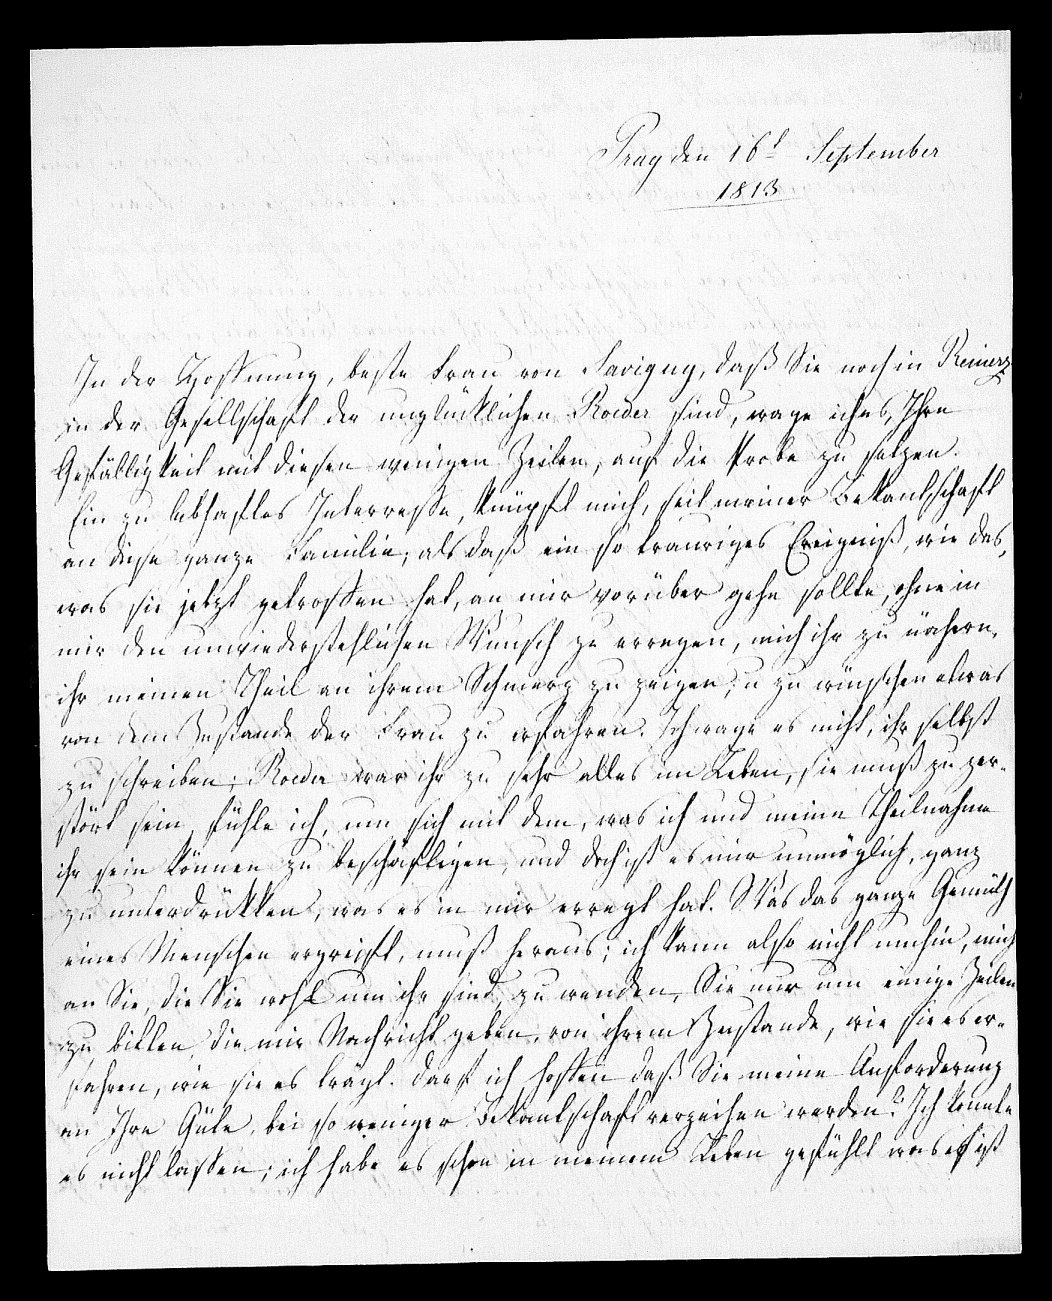 Prag den 16t September
1813
In der Hoffnung, beste Frau von Savigny, daß Sie noch in Reinerz
in der Gesellschaft der unglücklichen Roeder sind, wage ich es, Ihre
Gefälligkeit mit diesen wenigen Zeilen, auf die Probe zu setzen.
Ein zu lebhaftes Interresse, knüpft mich, seit meiner Bekantschaft
an diese ganze Familie, als daß ein so trauriges Ereigniß, wie das,
was sie jetzt getroffen hat, an mir vorüber gehn sollte, ohne in
mir den unwiederstehlichen Wunsch zu erregen, mich ihr zu nähern,
ihr meinen Theil an ihrem Schmerz zu zeigen, u zu wünschen etwas
von dem Zustande der Frau zu erfahren. Ich wage es nicht, ihr selbst
zu schreiben; Roeder war ihr zu sehr alles im Leben, sie muß zu zer-
stört sein, fühle ich, um sich mit dem, was ich und meine Theilnahme
ihr sein können zu beschäftigen, und doch ist es mir unmöglich, ganz
zu unterdrükken, was es in mir erregt hat. Was das ganze Gemüth
eines Menschen ergreift, muß heraus; ich kann also nicht umhin, mich
an Sie, die Sie wohl um ihr sind, zu wenden, Sie nur um einige Zeilen
zu bitten, die mir Nachricht geben, von ihrem Zustande, wie sie es er-
fahren, wie sie es trägt. Darf ich hoffen daß Sie meine Anforderung
an Ihre Güte, bei so weniger Bekantschaft verzeihen werden? Ich konnte
es nicht lassen; ich habe es schon in meinem Leben gefühlt was es ist